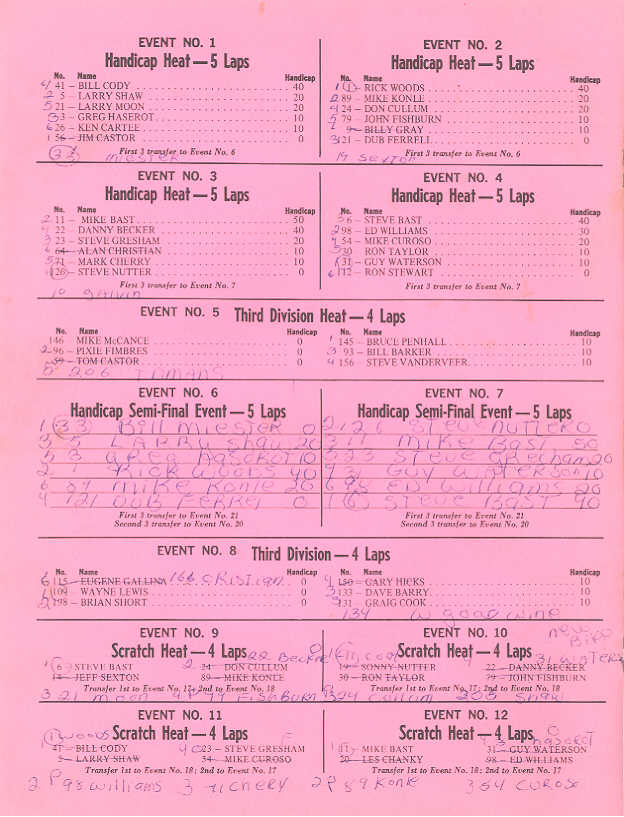 EVENT NO. 1
Handicap Heat — 5 Laps
No. Name Handicap
4 41 – BILL CODY 40
2 5 – LARRY SHAW 20
5 21 – LARRY MOON 20
3 3 – GREG HASEROT 10
6 26 – KEN CARTEE 10
1 56 – JIM CASTOR 0
First 3 transfer to Event No. 6
33 MIESTER
EVENT NO. 2
Handicap Heat — 5 Laps
No. Name Handicap
1 1 – RICK WOODS 40
2 89 – MIKE KONLE 20
4 24 – DON CULLUM 20
5 79 – JOHN FISHBURN 10
9 – BILLY GRAY 10
3 121 – DUB FERRELL 0
First 3 transfer to Event No. 6
14 Sexton
EVENT NO. 3
Handicap Heat — 5 Laps
No. Name Handicap
2 11 – MIKE BAST 50
4 22 – DANNY BECKER 40
3 23 – STEVE GRESHAM 20
6 64 – ALAN CHRISTIAN 10
5 71 – MARK CHERRY 10
1 126 – STEVE NUTTER 0
First 3 transfer to Event No. 7
10 GALVIN
EVENT NO. 4
Handicap Heat — 5 Laps
No. Name Handicap
6 – STEVE BAST 40
2 98 – ED WILLIAMS 30
4 54 – MIKE CUROSO 20
5 30 – RON TAYLOR 10
1 31 – GUY WATERSON 10
6 112 – RON STEWART 0
First 3 transfer to Event No. 7
EVENT NO. 5 Third Division Heat — 4 Laps
No. Name Handicap
146 MIKE McCANCE 0
2 96 – PIXIE FIMBRES 0
59 – TOM CASTOR 0
5 206 TOMANS
No. Name Handicap
1 145 – BRUCE PENHALL 10
3 93 – BILL BARKER 10
4 156 – STEVE VANDERVEER 10
EVENT NO. 6
Handicap Semi-Final Event — 5 Laps
1 33 Bill MIESTER 0
3 5 LARRY Shaw 20
5 3 GREG HASEROT 10
2 1 RICK WOODS 40
6 89 MIKE KONLE 20
4 121 DUB FERREL 0
First 3 transfer to Event No. 21
Second 3 transfer to Event No. 20
EVENT NO. 7
Handicap Semi-Final Event — 5 Laps
2 126 STEVE NUTTER 0
3 11 MIKE BAST 50
5 23 STEVE GRECHAM 20
4 31 GUY WATERSON 10
6 98 ED WILLIAMS 20
1 6 STEVE BAST 40
First 3 transfer to Event No. 21
Second 3 transfer to Event No. 20
EVENT NO. 8 Third Division — 4 Laps
No. Name Handicap
6 115 – EUGENE GALLINA 166 CRISTIAN 0
1 109 – WAYNE LEWIS 0
5 198 – BRIAN SHORT 0
No. Name Handicap
4 150 – GARY HICKS 10
2 133 – DAVE BARRY 10
3 131 – GRAIG COOK 10
134 W GOODWINE
EVENT NO. 9
Scratch Heat — 4 Laps
1 6 – STEVE BAST 2 24 – DON CULLUM 22 Becker
14 – JEFF SEXTON 89 – MIKE KONLE
Transfer 1st to Event No. 17; 2nd to No. 18
3 21 moon 4 P 79 FishBurn
EVENT NO. 10
new Bike
Scratch Heat — 4 Laps
19 – SONNY NUTTER 22 – DANNY BECKER
30 – RON TAYLOR 79 – JOHN FISHBURN
Transfer 1st to Event No. 17; 2nd to No. 18
24 Cullum Shaw
EVENT NO. 11
Scratch Heat — 4 Laps
1 woods
41 – BILL CODY 4 23 – STEVE GRESHAM
5 – LARRY SHAW 54 – MIKE CUROSO
Transfer 1st to Event No. 18; 2nd to No. 17
2 P 98 williams 3 71 CHERY
EVENT NO. 12
Scratch Heat — 4 Laps
1 11 – MIKE BAST 31 – GUY WATERSON
20 – LES CHANKY 98 – ED WILLIAMS
Transfer 1st to Event No. 18; 2nd to No. 17
2 P 89 Konle 3 54 CUROSO